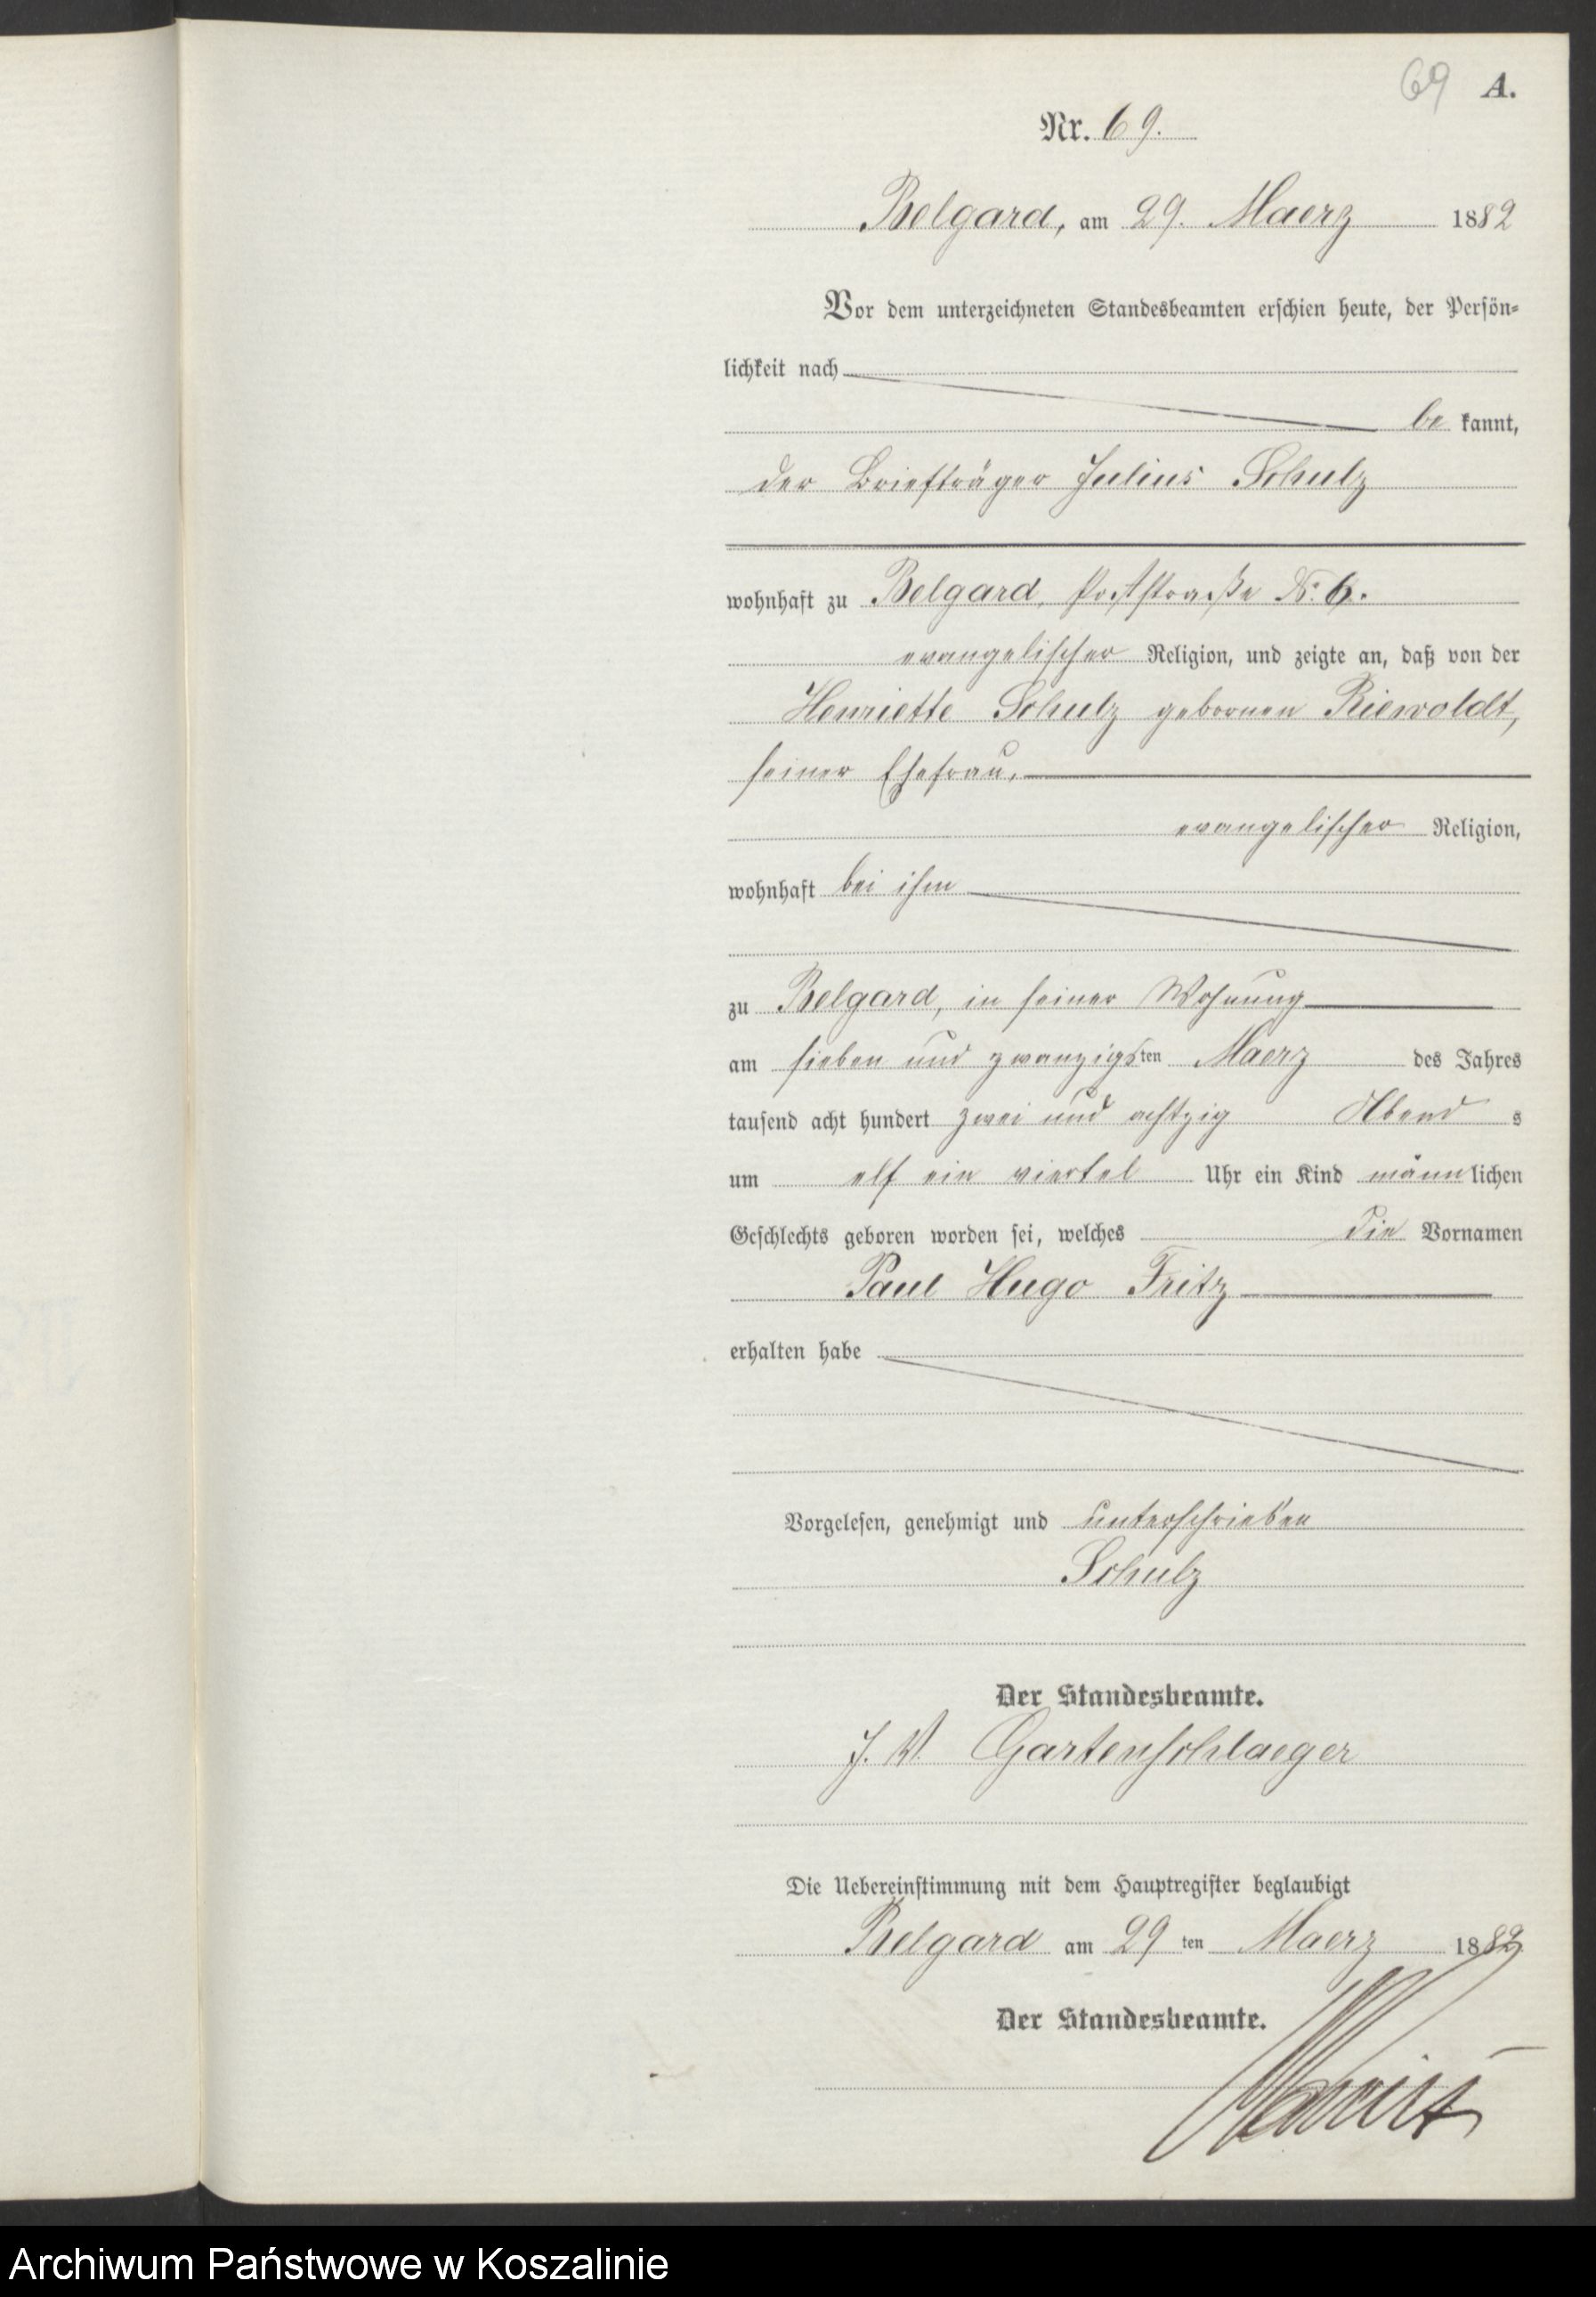 69 A.
Nr. 69.
Belgard, am 29. Maerz 1882
Vor dem unterzeichneten Standesbeamten erschien heute, der Persön-
lichkeit nach
be kannt,
der Briefträger Julius Schulz
wohnhaft zu Belgard, Poststraße No. 6.
evangelischer Religion, und zeigte an, daß von der
Henriette Schulz gebornen Riewoldt,
seiner Ehefrau,
evangelischer Religion,
wohnhaft bei ihm
zu Belgard, in seiner Wohnung
am sieben und zwanzigsten Maerz des Jahres
tausend acht hundert zwei und achtzig Abend s
um elf ein viertel Uhr ein Kind männlichen
Geschlechts geboren worden sei, welches die Vornamen
Paul Hugo Fritz
erhalten habe
Vorgelesen, genehmigt und unterschrieben
Schulz
Der Standesbeamte.
J. V. Gartenschlaeger
Die Uebereinstimmung mit dem Hauptregister beglaubigt
Belgard am 29 ten Maerz 1882
Der Standesbeamte.
Archiwum Państwowe w Koszalinie